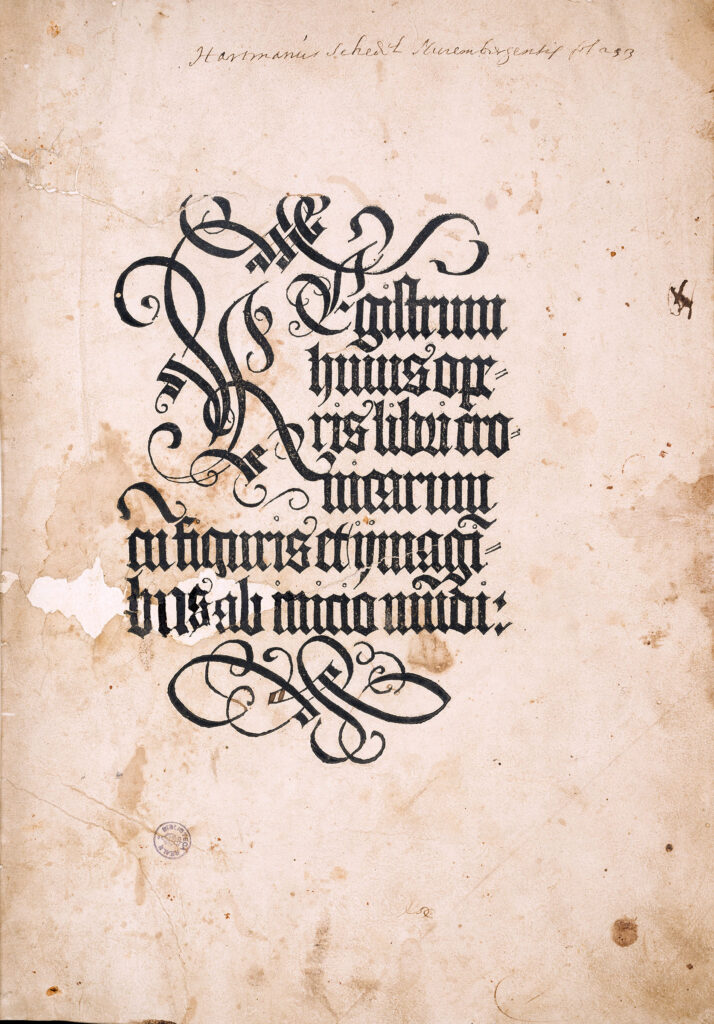 Hartmanus Schedel Nurembergensis fol 233
REgistrum
huius ope-
ris libri cro-
nicarum
cū figuris et ymagi-
bus ab inicio mūdi:
BIBLIOTECA REALE